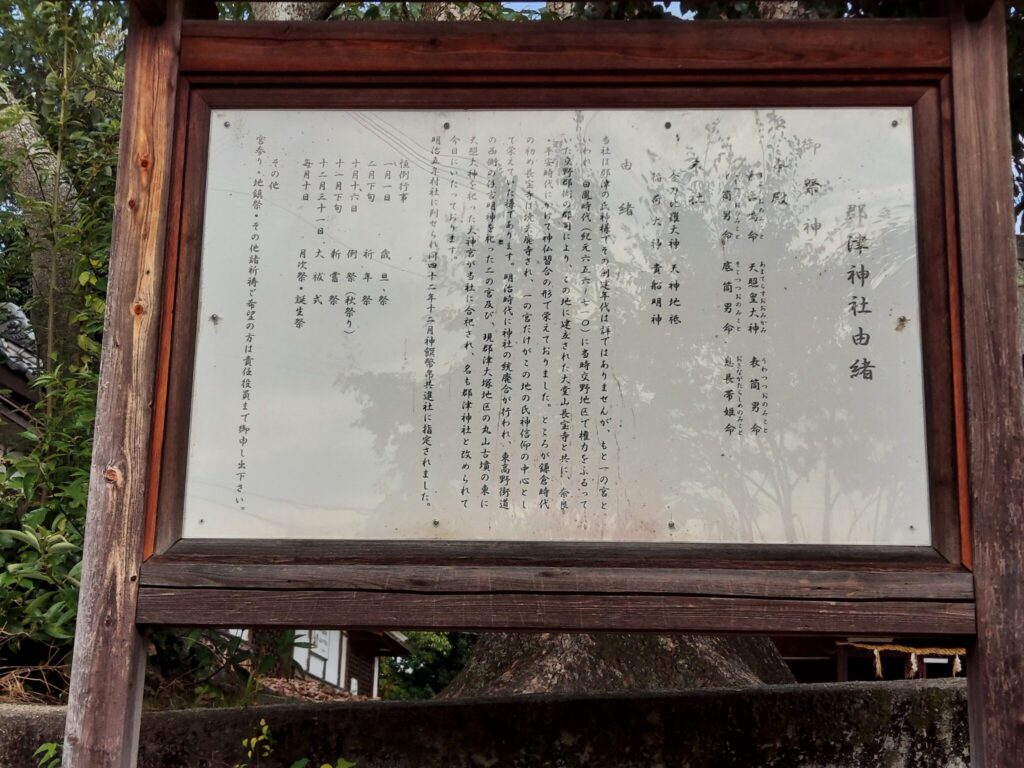 郡津神社由緒
御祭神
本殿
天照皇大神 表筒男命
あまてらすおおみかみ うわつつおのみこと
中筒男命 底筒男命 息長帯姫命
そこつつおのみこと おきながたらしひめのみこと
末社
金刀比羅大神 天神地祗
稲荷大神 貴船明神
由緒
当社は郡津の氏神様でその創建年代は詳ではありませんが、もと一の宮と
いわれ、白鳳時代(紀元六五六〜七一〇)に当時交野地区で権力をふるって
いた交野郡衙の郡司により、この地に建立された大堂山長宝寺と共に、奈良
・平安時代にかけて神仏習合の形で栄えておりました。ところが鎌倉時代
の初め長宝寺は焼失廃寺され、一の宮だけがこの地の氏神信仰の中心とし
て栄えていた様であります。明治時代に神社の統廃合が行われ、東高野街道
の西側の住吉明神を祀った二の宮及び、現郡津大塚地区の丸山古墳の東に
天照大神を祀った大神宮が当社に合祀され、名も郡津神社と改められて
今日にいたっております。
明治五年村社に列せられ同四十二年十二月神饌幣帛共進社に指定されました。
恒例行事
一月一日 歳旦祭
二月下旬 祈年祭
十月十六日 例祭(秋祭り)
十一月下旬 新嘗祭
十二月三十一日 大祓式
毎月十日 月次祭・誕生祭
その他
宮参り・地鎮祭・その他諸祈祷ご希望の方は責任役員まで御申し出下さい。